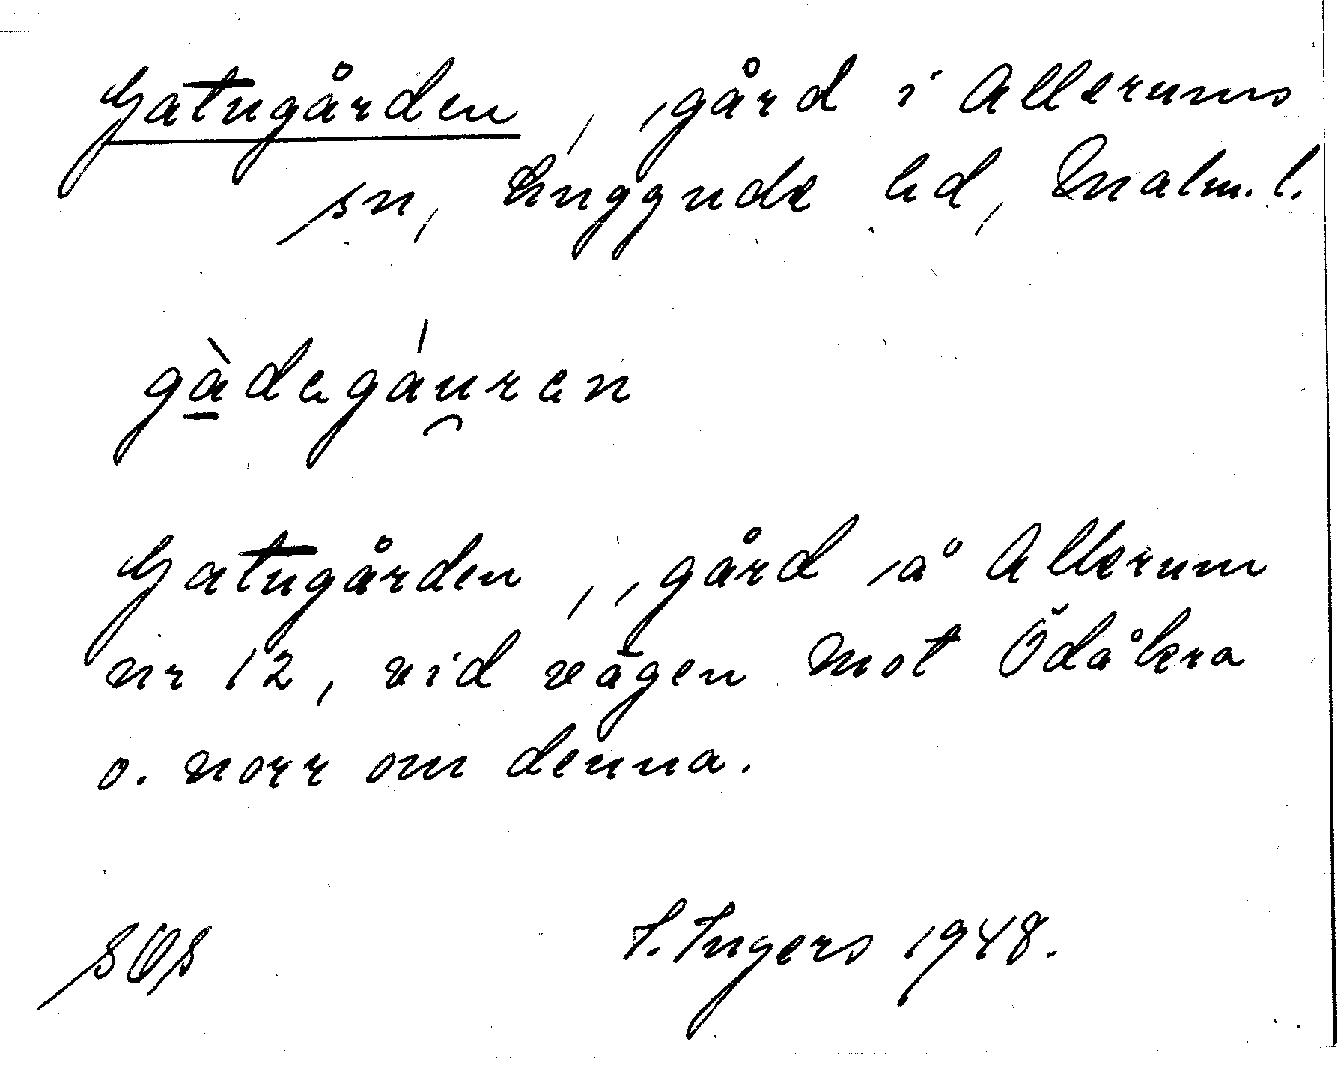 Gatugården, gård i Allerums
sn, Luggude hd, Malm. l.
gà̱dagáu̯ran
Gatugården, gård å Allerum
nr 12, vid vägen mot Ödåkra
o. norr om denna.
SOS I. Ingers 1948.